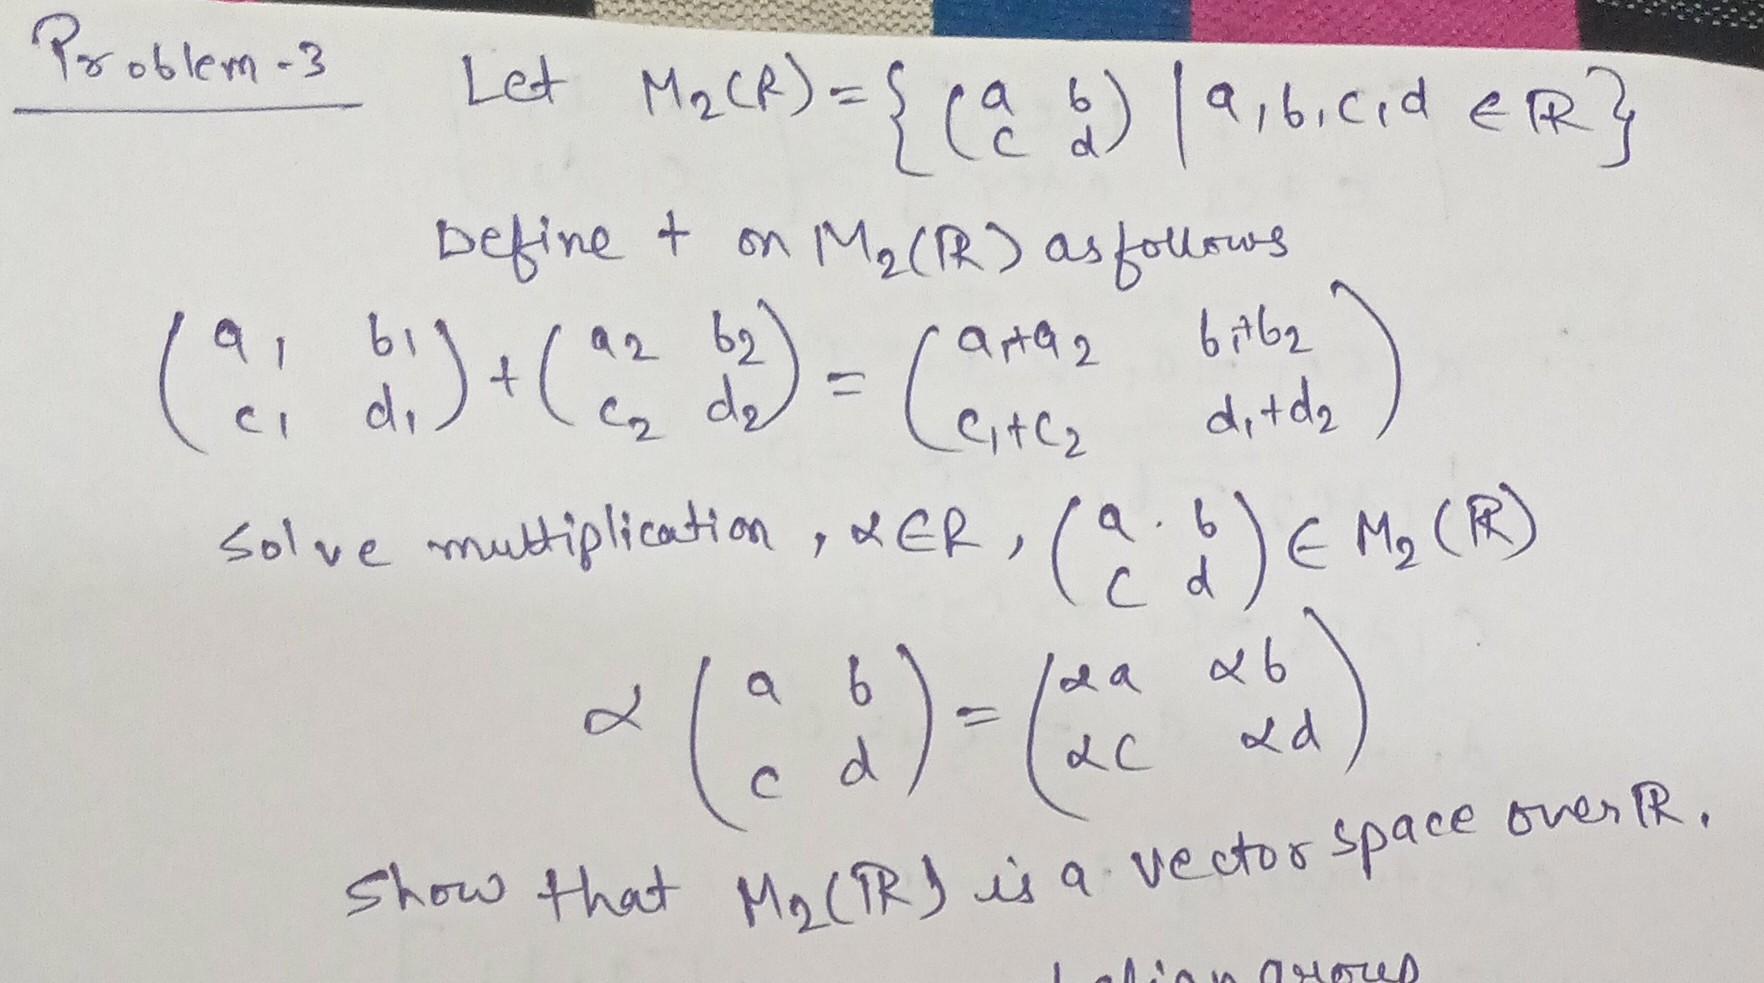 Problem-3 Let M₂(R) = { (a b / c d) | a, b, c, d ∈ ℝ }
Define + on M₂(ℝ) as follows
(a₁ b₁ / c₁ d₁) + (a₂ b₂ / c₂ d₂) = (a₁+a₂ b₁+b₂ / c₁+c₂ d₁+d₂)
Solve multiplication, α ∈ R, (a b / c d) ∈ M₂(ℝ)
α (a b / c d) = (αa αb / αc αd)
Show that M₂(ℝ) is a vector space over ℝ.
group